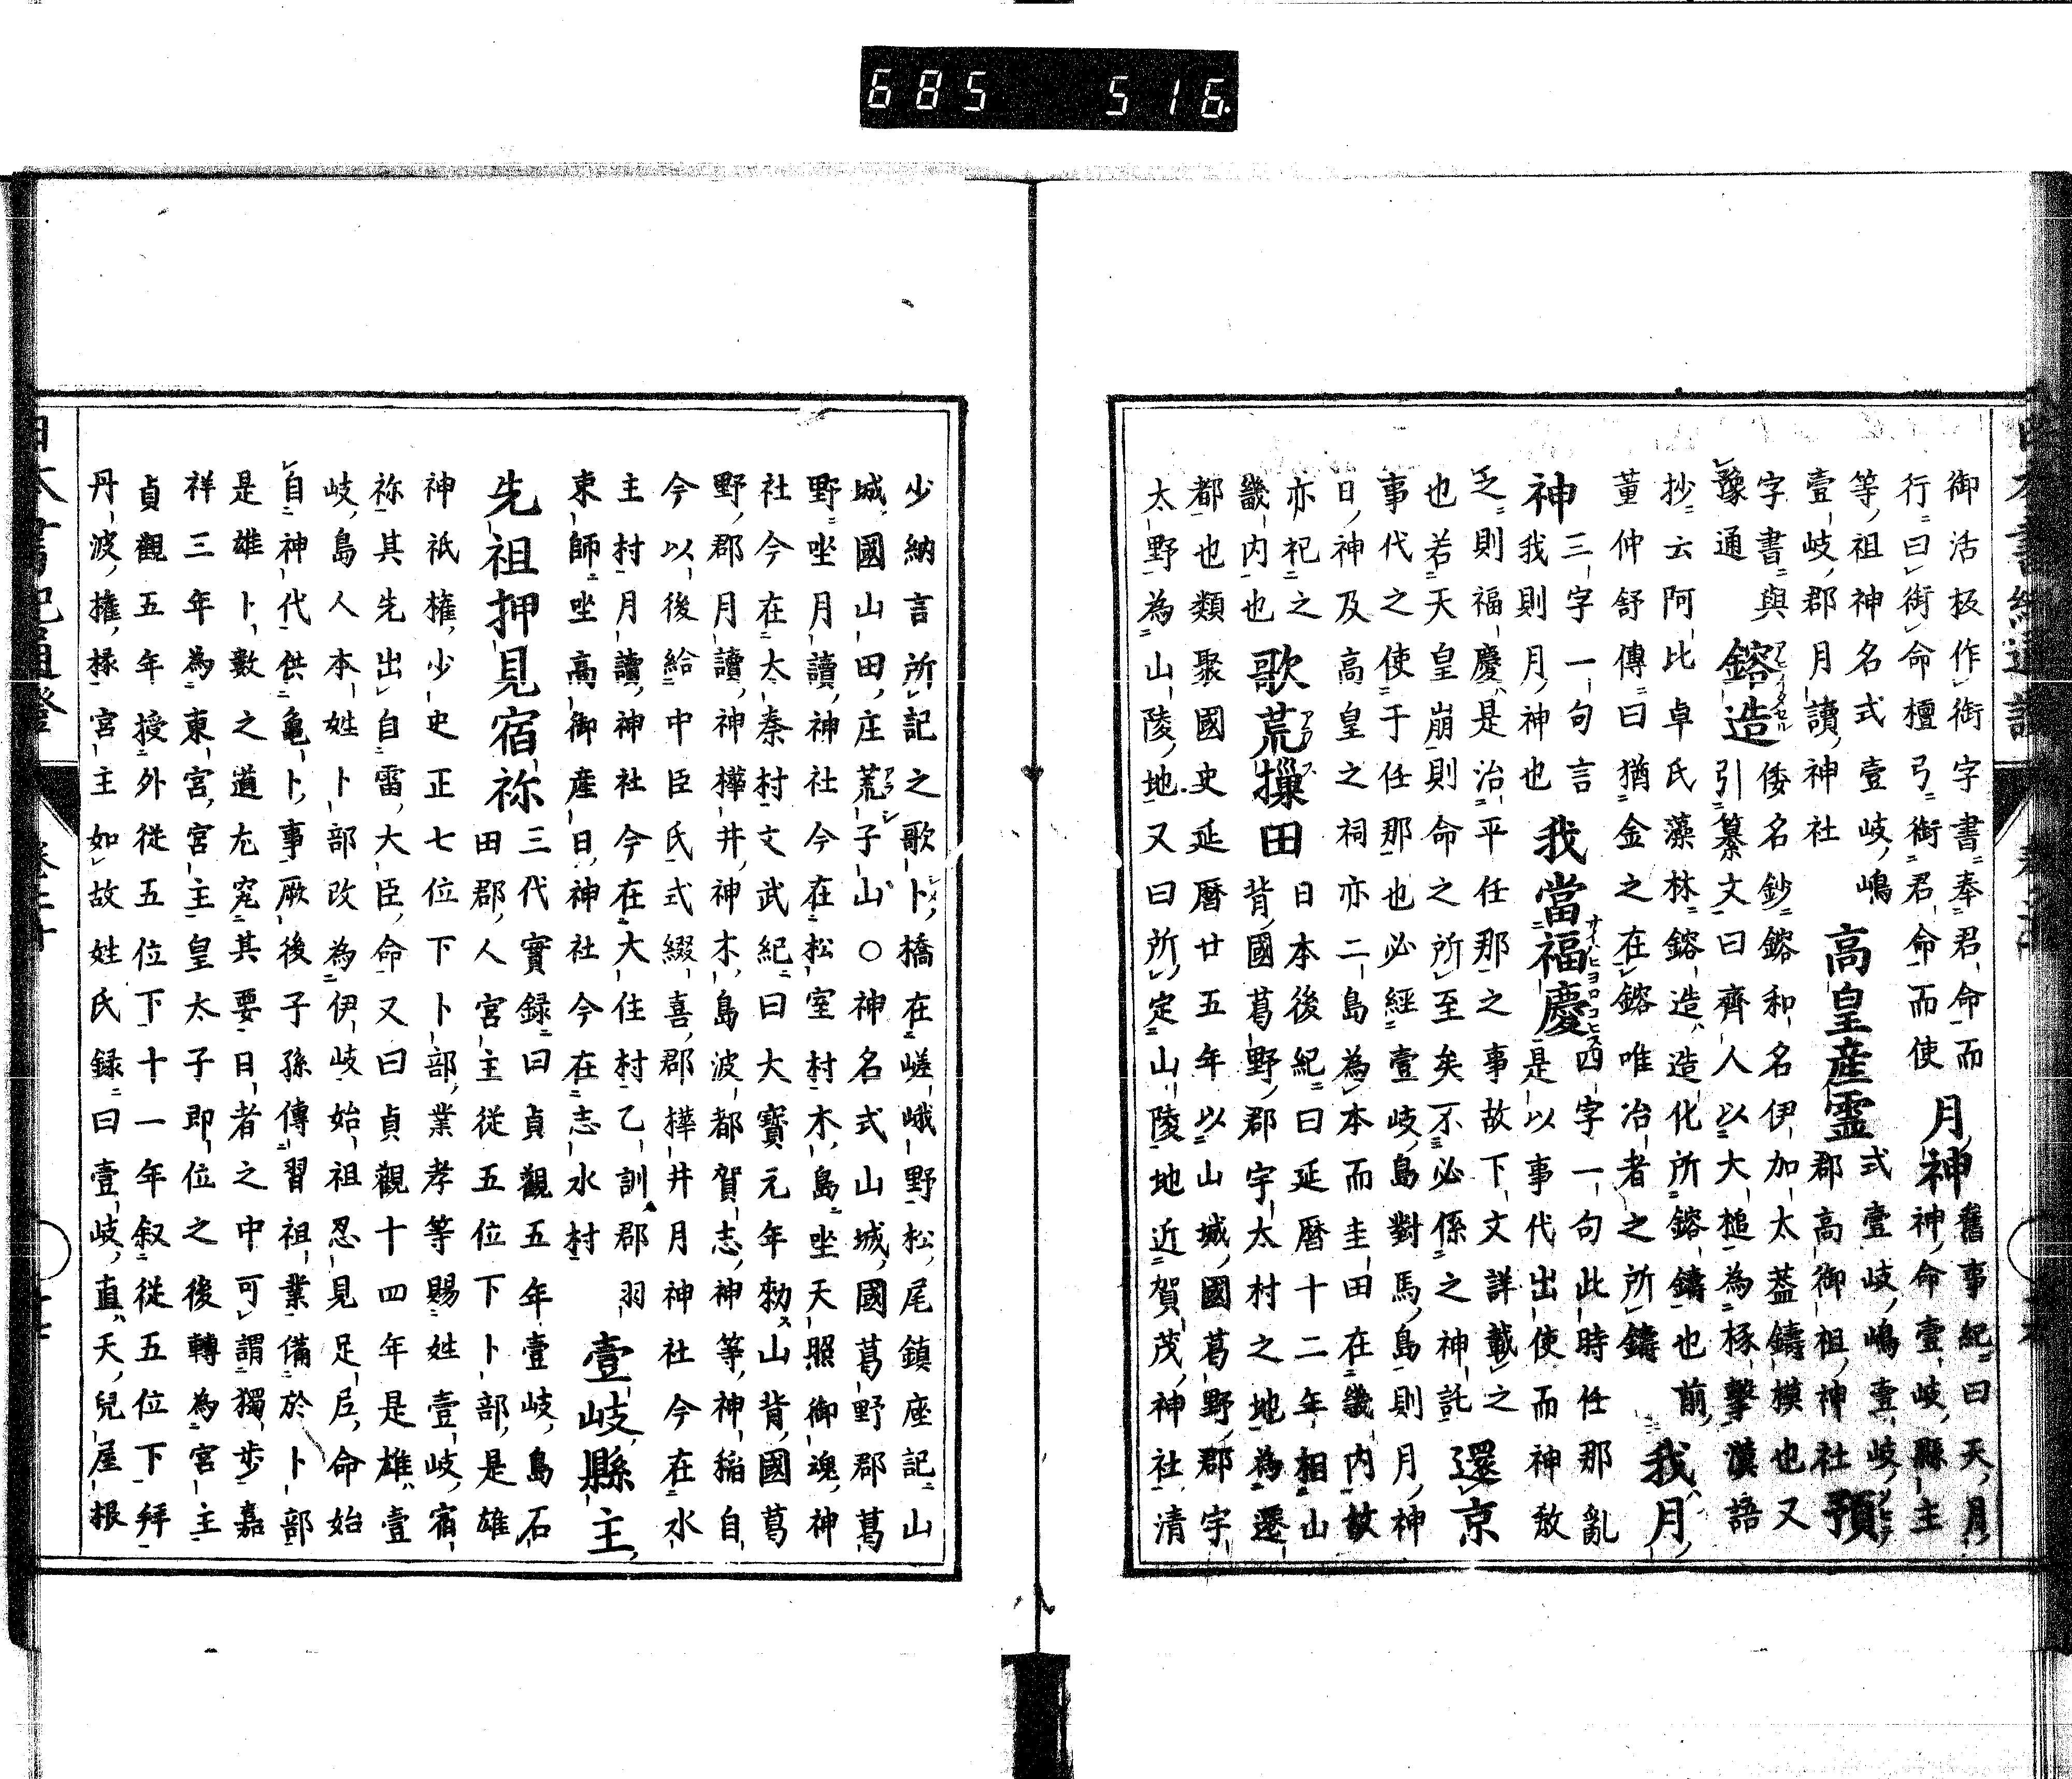 日本書紀通證
御活板作衘字書奉君命而
行曰衘命檀弓衘君命而使
月神
舊事紀曰天月
神命壹岐縣主
等祖神名式壹岐嶋
壹岐郡月讀神社
高皇産霊
式壹岐嶋壹岐
郡高御祖神社
預
字書與
豫通
鎔造
倭名鈔鎔和名伊加太葢鑄模也又
引纂文曰齊人以大槌為椓擊漢語
抄云阿比卓氏藻林鎔造造化所鎔鑄也前
董仲舒傳曰猶金之在鎔唯冶者之所鑄
我月
神
三字一句言
我則月神也
我當福慶
サイハヒヨロコヒス
四字一句此時任那亂
是以事代出使而神敖
乏則福慶是治平任那之事故下文詳載之
也若天皇崩則命之所至矣不必係之神託
還京
事代之使于任那也必經壹岐島對馬島則月神
日神及高皇之祠亦二島為本而圭田在畿内故
亦祀之
畿内也
歌荒樔田
アラス
日本後紀曰延暦十二年相山
背國葛野郡宇太村之地為遷
都也類聚國史延暦廿五年以山城國葛野郡宇
太野為山陵地又曰所定山陵地近賀茂神社清
少納言所記之歌卜橋在嵯峨野松尾鎮座記山
城國山田庄荒子山○神名式山城國葛野郡葛
野坐月讀神社今在松室村木島坐天照御魂神
社今在太秦村文武紀曰大寳元年勅山背國葛
野郡月讀神樺井神木島波都賀志神等神稲自
今以後給中臣氏式綴喜郡樺井月神社今在水
主村月讀神社今在大住村乙訓郡羽
束師坐高御産日神社今在志水村
壹岐縣主
先祖押見宿祢
三代實録曰貞觀五年壹岐島石
田郡人宮主從五位下卜部是雄
神祇權少史正七位下卜部業孝等賜姓壹岐宿
祢其先出自雷大臣命又曰貞觀十四年是雄壹
岐島人本姓卜部改為伊岐始祖忍見足尼命始
自神代供亀卜事厥後子孫傳習祖業備於卜部
是雄卜數之道尤究其要日者之中可謂獨歩嘉
祥三年為東宮宮主皇太子即位之後轉為宮主
貞觀五年授外從五位下十一年叙從五位下拜
丹波權掾宮主如故姓氏録曰壹岐直天兒屋根